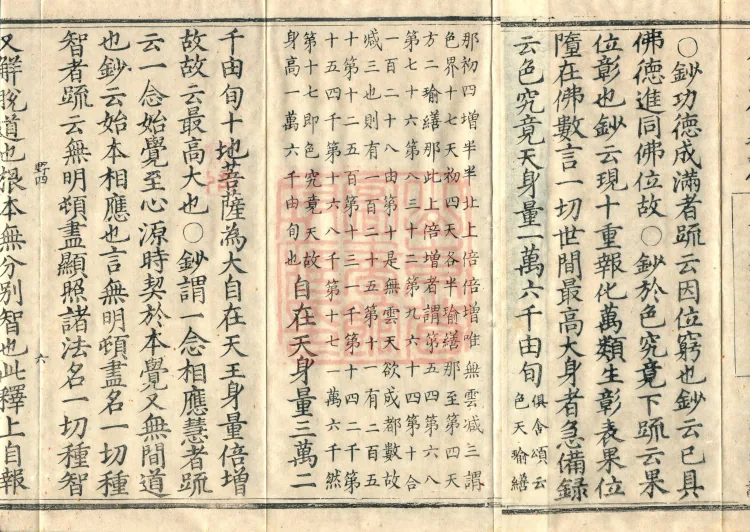 〇鈔功德成滿者䟽云因位窮也鈔云已具
佛德進同佛位故〇鈔於色究竟下䟽云果
位彰也鈔云現十重報化萬類生彰表果位
隨在佛數言一切世間最高大身者急備録
云色究竟天身量一萬六千由旬俱舍頌云
色天瑜繕
那初四增半半此上倍倍增唯無雲减三謂
色界十七天初四天各半瑜繕那至第四天
方二瑜繕那此上倍增者謂第五四第六八
第七十六第八三十二第九六十四第十合
一百二十八由第十是無雲天欲成都數故
减三也則有一百二十五第十一有二百五
十第十二五百第十三一千第十四二千第
十五四千第十六八千第十七一萬六千然
第十七即色究竟天故
身高一萬六千由旬也自在天身量三萬二
千由旬十地菩薩為大自在天王身量倍增
故故云最高大也〇鈔謂一念相應慧者䟽
云一念始覺至心源時契於本覺又無間道
也鈔云始本相應也言無明頓盡名一切種
智者䟽云無明頓盡顯照諸法名一切種智
野四
六
又解脫道也根本無分別智也此釋上自報